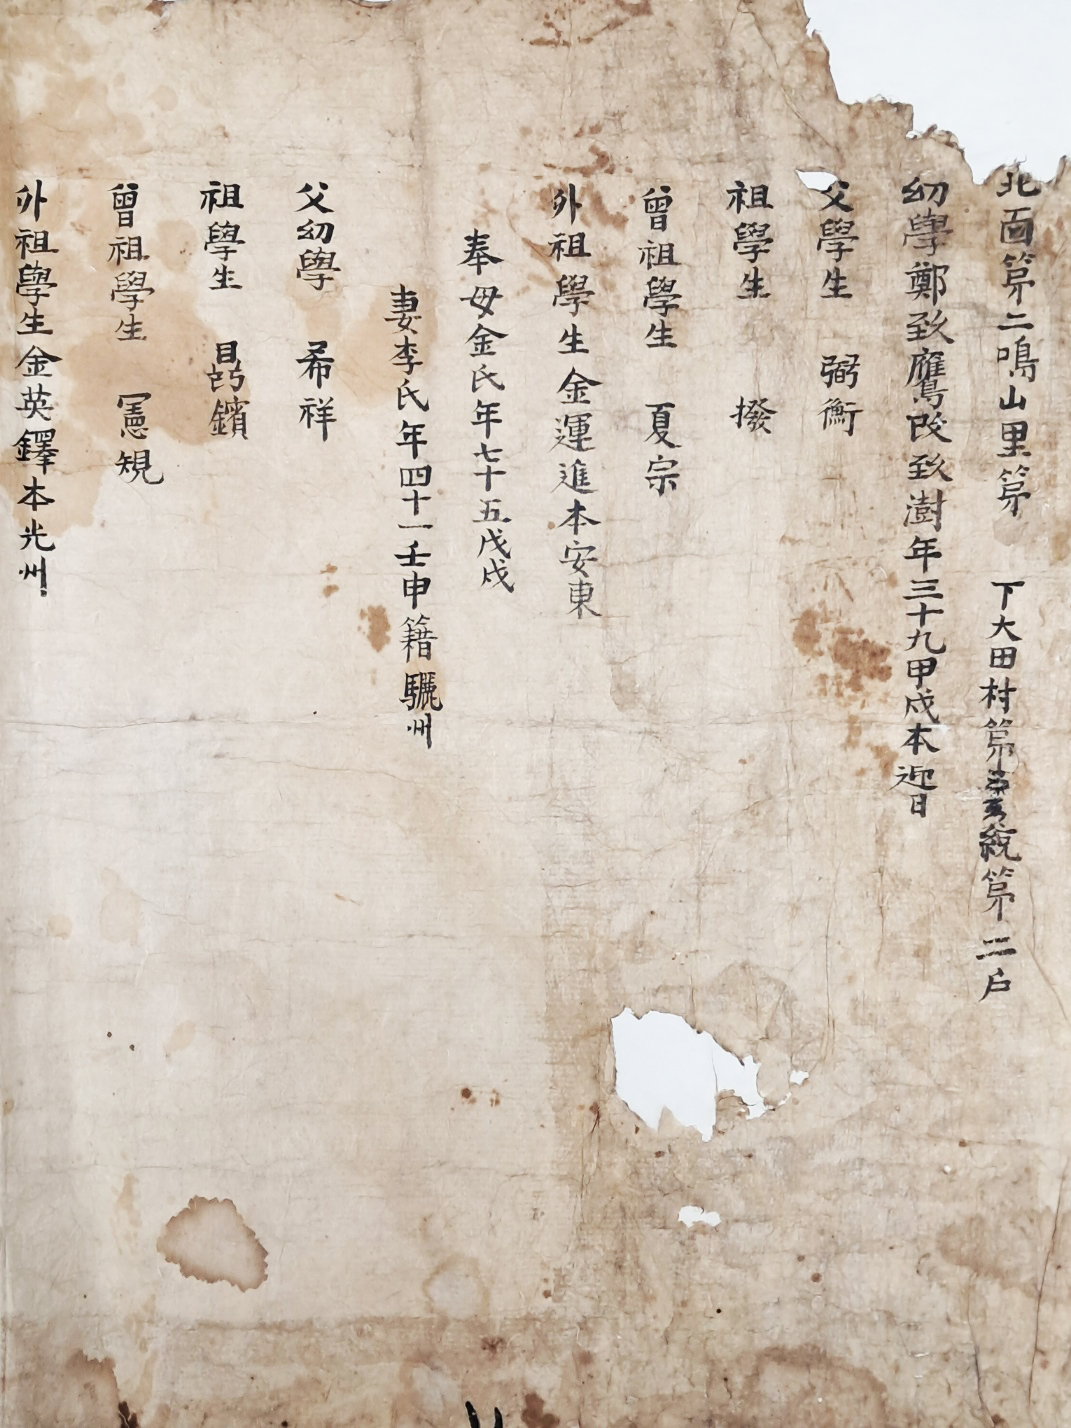 北面第二鳴山里第 下大田村第 統第二戶
幼學鄭致鷹改致澍年三十九甲戌本迎日
父學生 弼衡
祖學生 撥
曾祖學生 夏宗
外祖學生金運進本安東
奉母金氏年七十五戊戌
妻李氏年四十一壬申籍驪州
父幼學 希祥
祖學生 鑌
曾祖學生 憲規
外祖學生金英鐸本光州